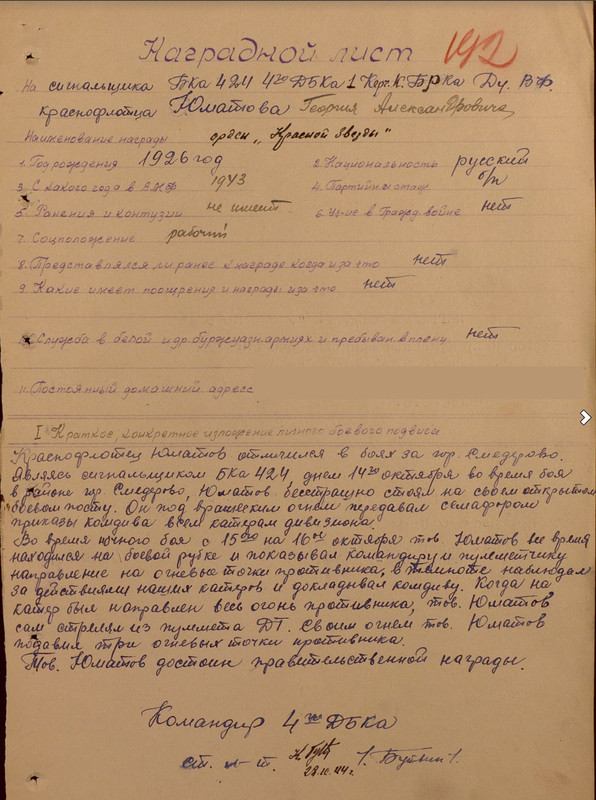 Наградной лист 192
На сигнальщика БКа 424 4го ДБКа 1 Керч. К. БрКа Ду. ВФ.
краснофлотца Юматова Георгия Александровича
Наименование награды орден „Красной Звезды"
1. Год рождения 1926 год 2. Национальность русский
3. С какого года в ВМФ 1943 4. Партийн стаж б/п
5. Ранения и контузии не имеет 6. Уч-ие в Гражд. войне нет
7. Соцположение рабочий
8. Представлялся ли ранее к награде когда и за что нет
9. Какие имеет поощрения и награды и за что нет
10. Служба в белой и др. буржуазн. армиях и пребыван. в плену нет
11. Постоянный домашний адресс
I Краткое, конкретное изложение личного боевого подвига
Краснофлотец Юматов отличился в боях за гор. Смедерово.
Являясь сигнальщиком БКа 424, днем 14го октября во время боя
в районе гор. Смедерово, Юматов бесстрашно стоял на своем открытом
боевом посту. Он под вражеским огнем передавал семафором
приказы комдива всем катерам дивизиона.
Во время ночного боя с 15го на 16ое октября тов Юматов все время
находился на боевой рубке и показывал командиру и пулеметчику
направление на огневые точки противника, в темноте наблюдал
за действиями наших катеров и докладывал комдиву. Когда на
катер был направлен весь огонь противника, тов. Юматов
сам стрелял из пулемета ДТ. Своим огнем тов. Юматов
подавил три огневых точки противника.
Тов. Юматов достоин правительственной награды.
Командир 4го ДБКа
ст. л-т.
28.10.44г.